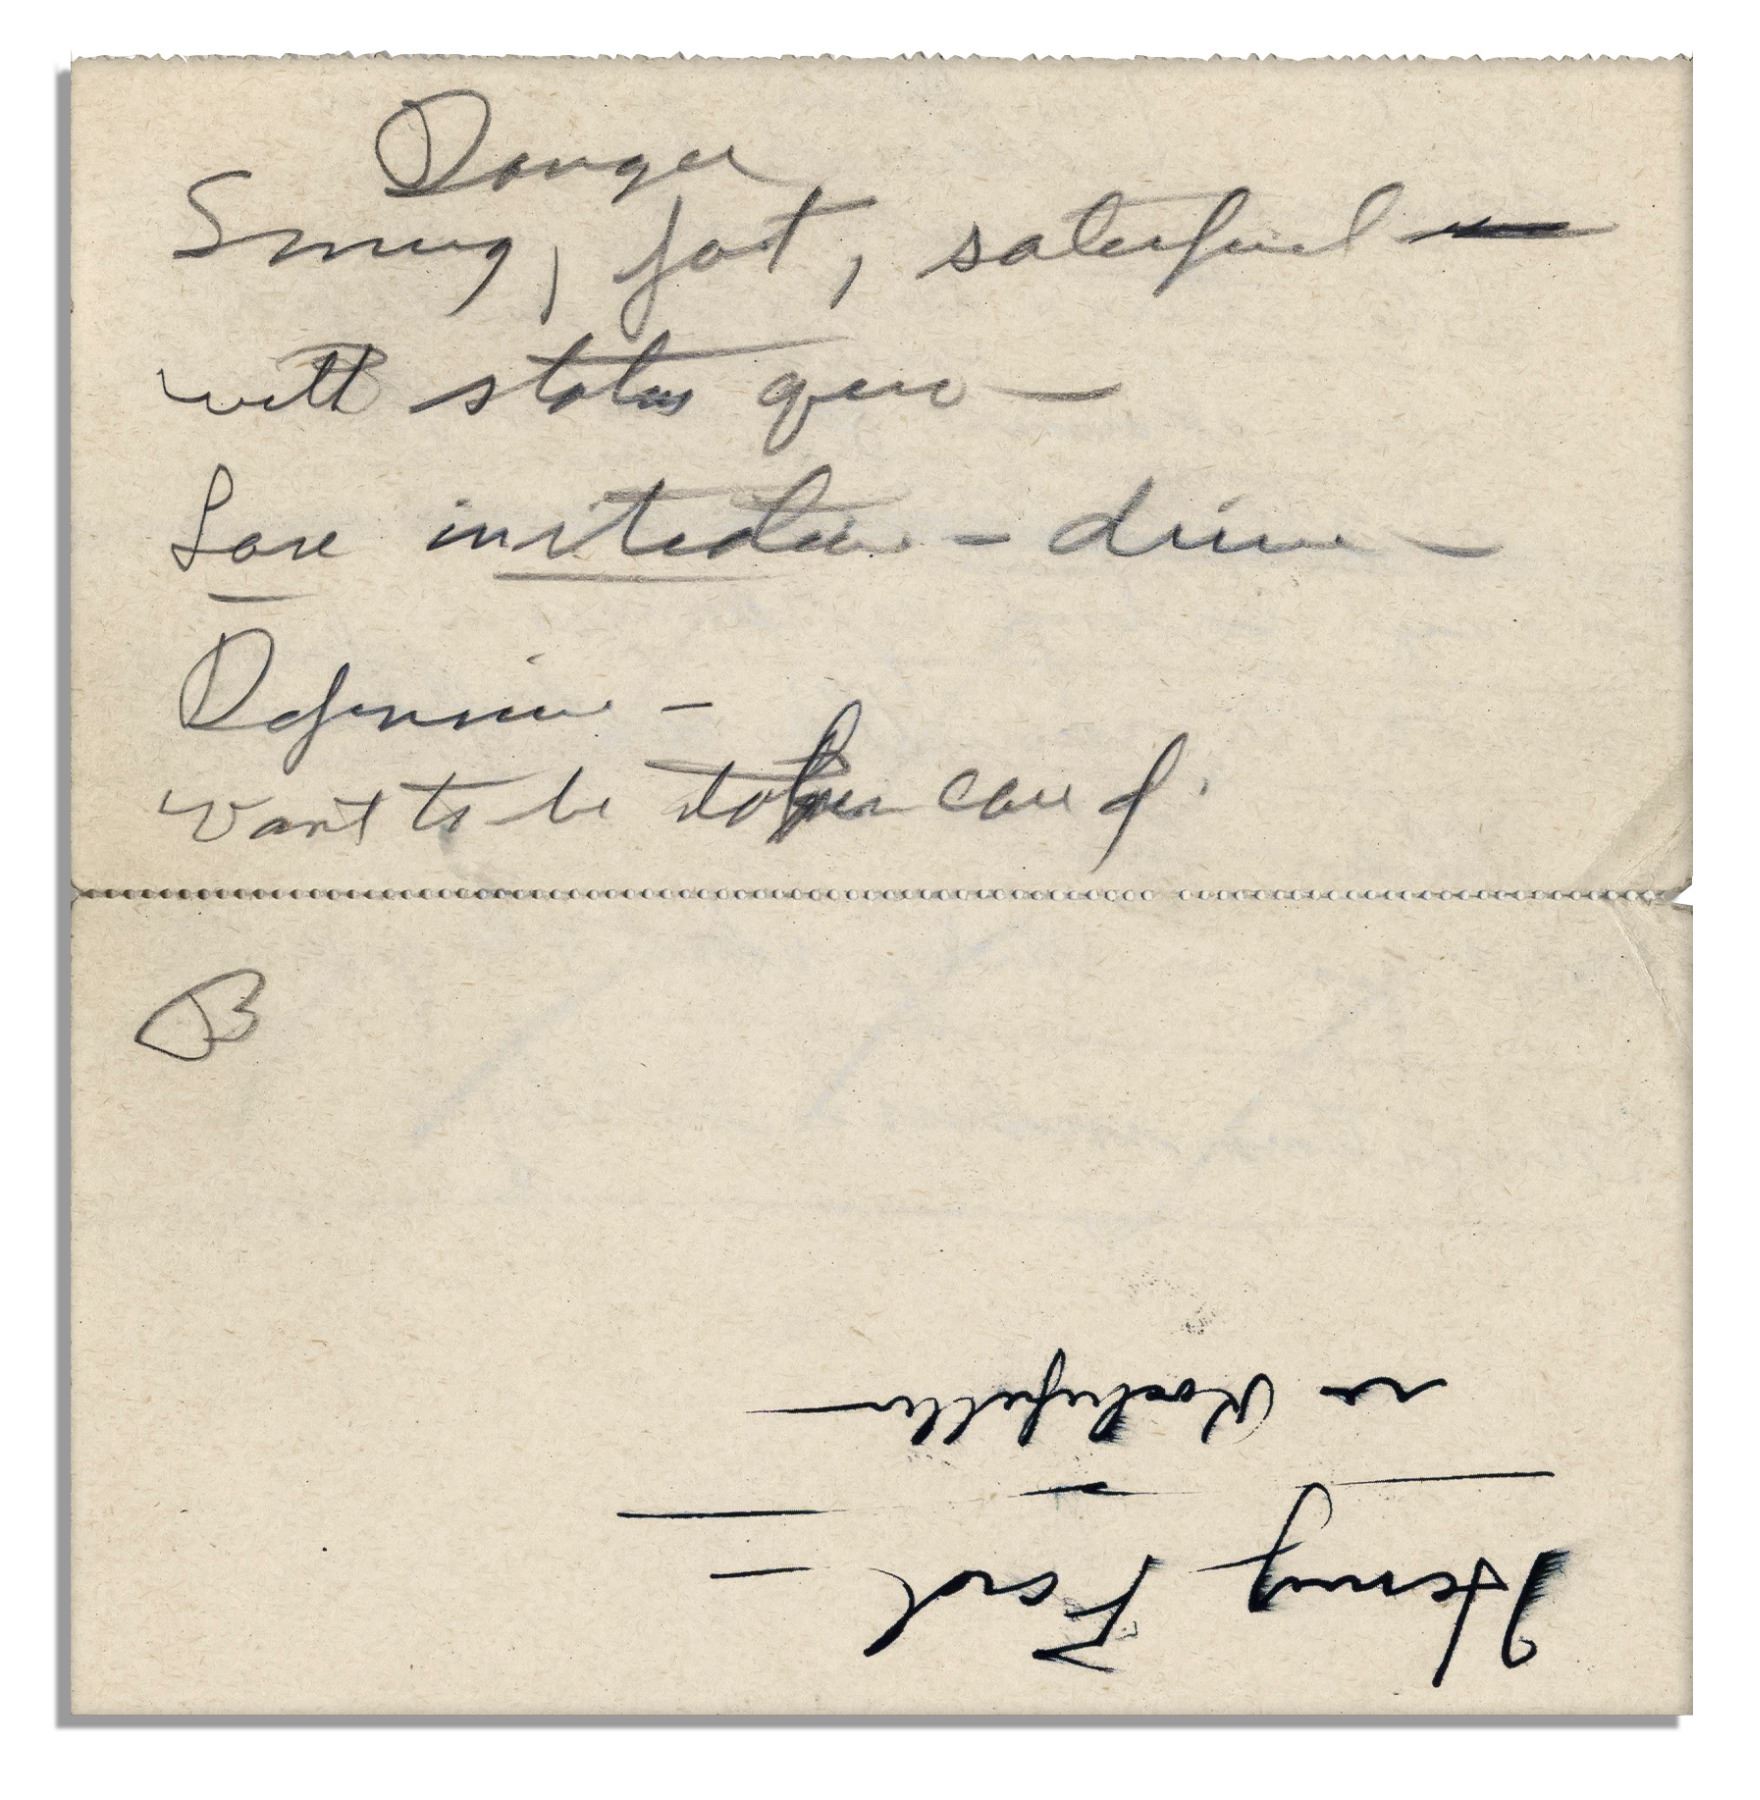 Danger
Smug, fat, satisfied —
with status quo —
Lose initiative - drive -
Defensive -
Want to be taken care of.
B
Henry Ford -
vs Rockefeller